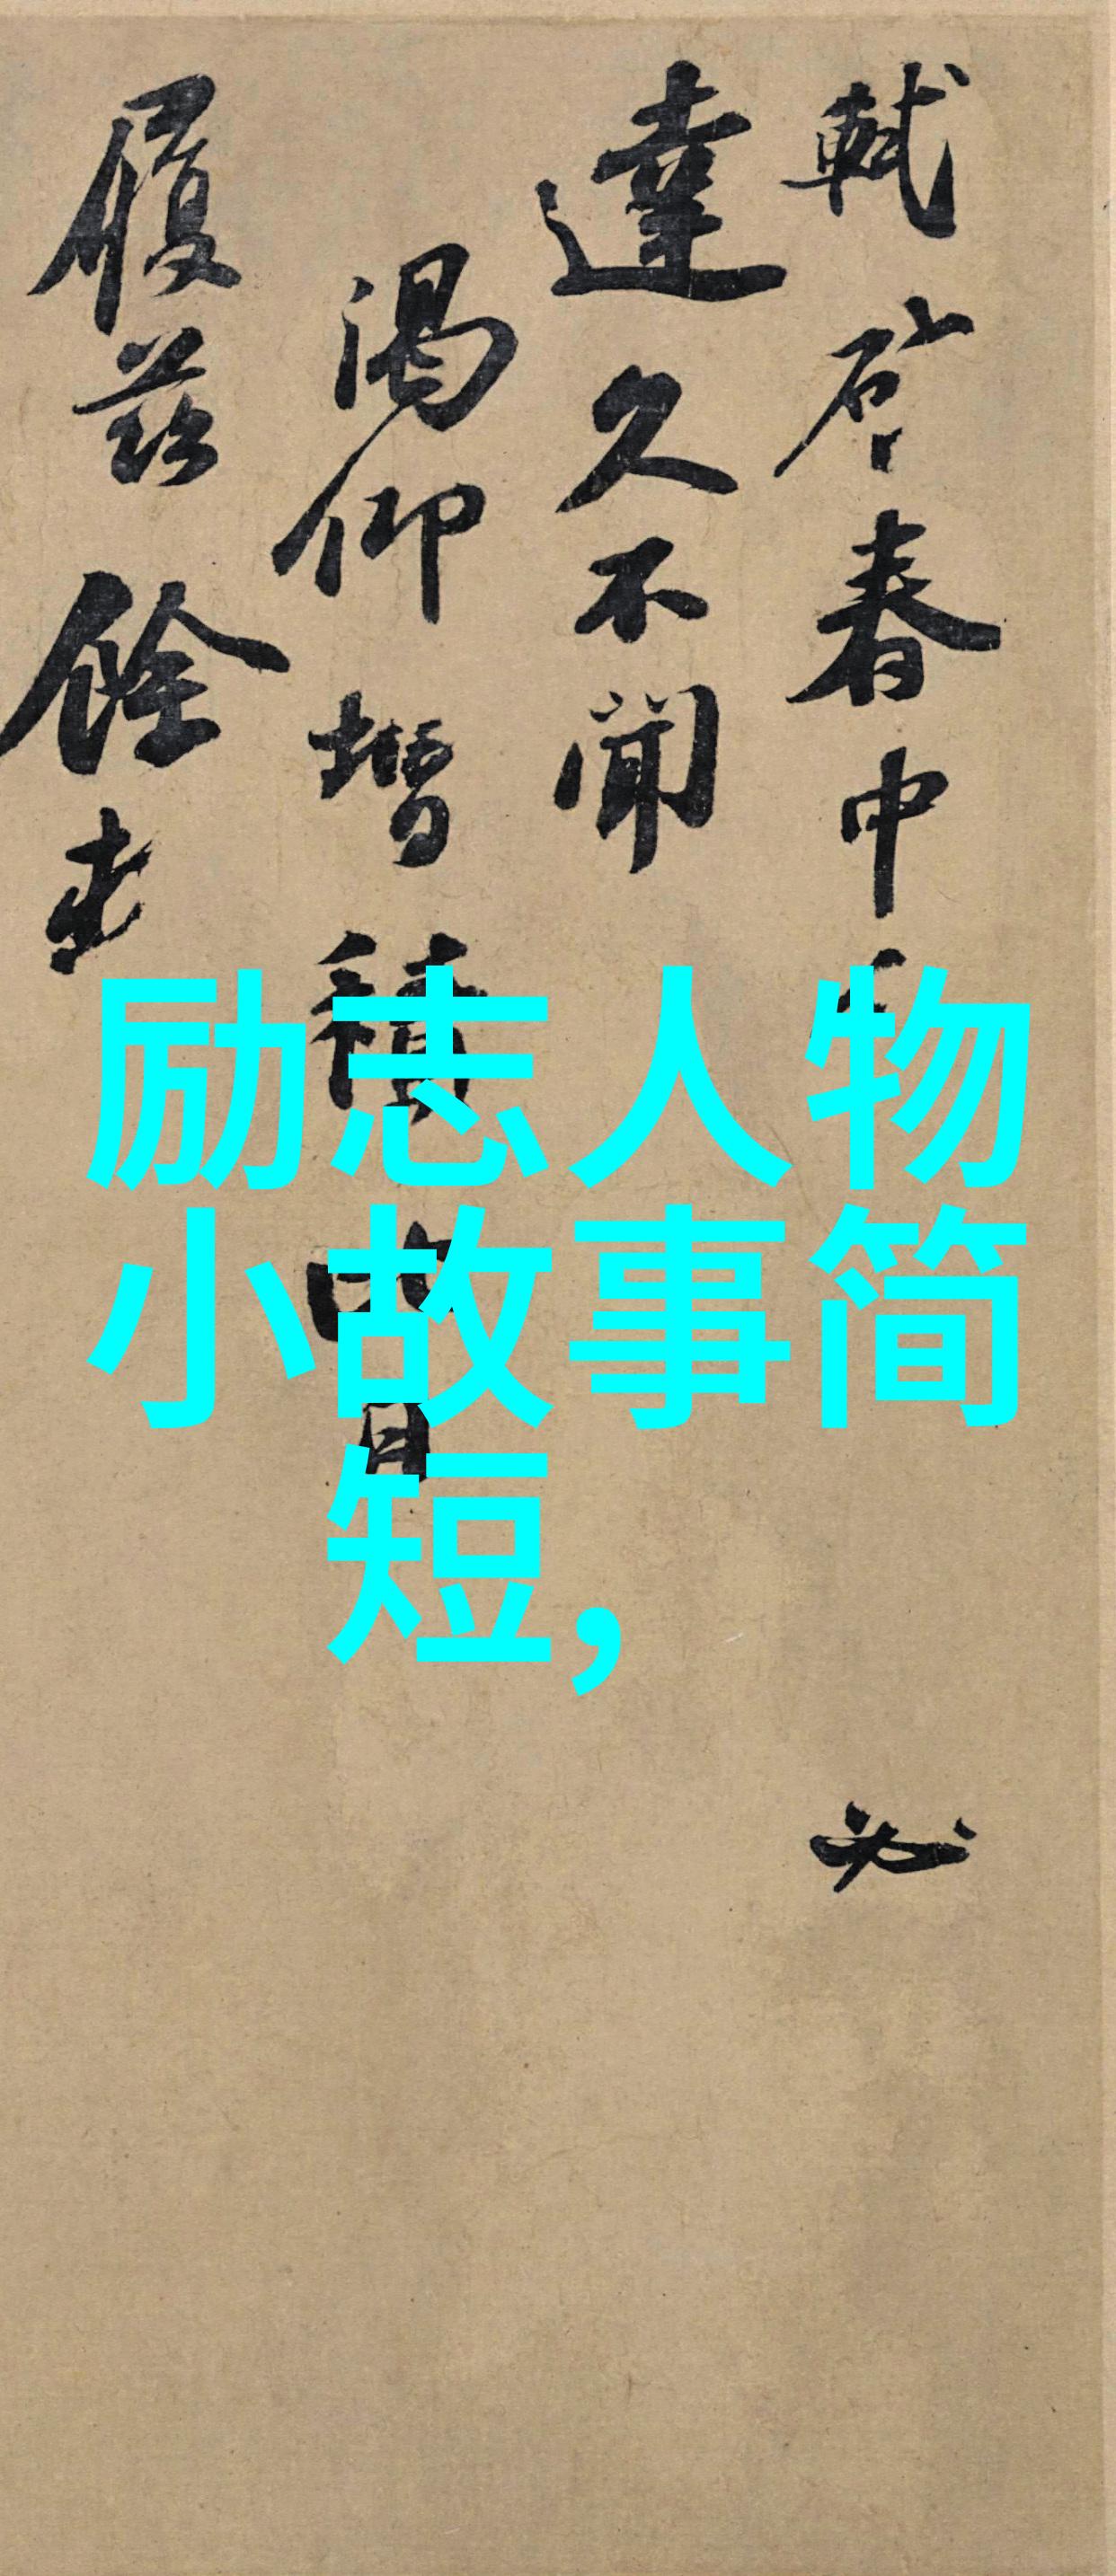 軾啓春中
必
達久不聞
渴仰增積比日
履茲餘
励志人物
小故事简
短,